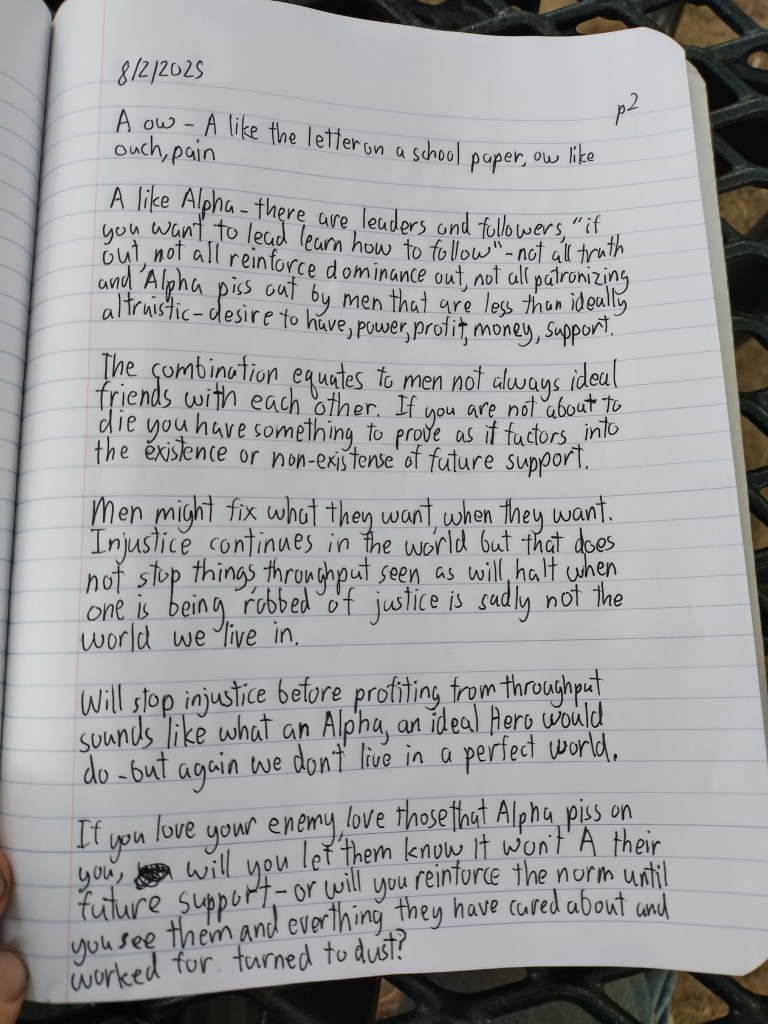 8/2/2025
p2
A ow - A like the letter on a school paper, ow like
ouch, pain
A like Alpha - there are leaders and followers, "if
you want to lead learn how to follow" - not all truth
out, not all reinforce dominance out, not all patronizing
and Alpha piss out by men that are less than ideally
altruistic - desire to have, power, profit, money, support.
The combination equates to men not always ideal
friends with each other. If you are not about to
die you have something to prove as it factors into
the existence or non-existense of future support.
Men might fix what they want, when they want.
Injustice continues in the world but that does
not stop things, throughput seen as will halt when
one is being robbed of justice is sadly not the
world we live in.
Will stop injustice before profiting from throughput
sounds like what an Alpha, an ideal Hero would
do - but again we don't live in a perfect world.
If you love your enemy, love those that Alpha piss on
you, will you let them know it won't A their
future support - or will you reinforce the norm until
you see them and everthing they have cared about and
worked for turned to dust?